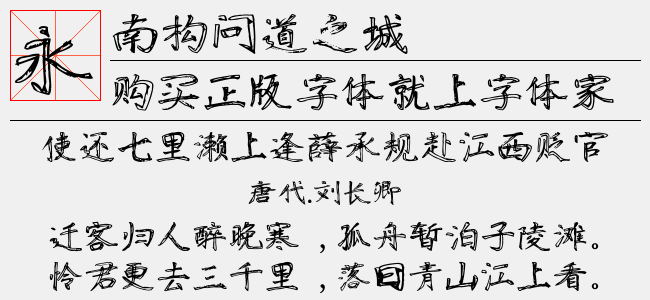 永
南构问道之城
购买正版字体就上字体家
使还七里濑上逢薛承规赴江西贬官
唐代.刘长卿
迁客归人醉晚寒，孤舟暂泊子陵滩。
怜君更去三千里，落日青山江上看。